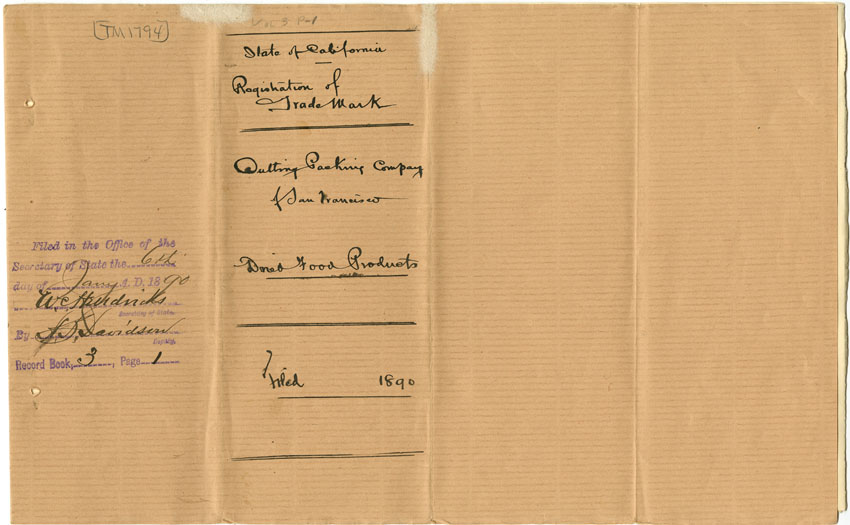 [TM1794]
Vol 3 P-1
State of California
Registration of
Trade Mark
Cutting Packing Company
of San Francisco
Dried Food Products
Filed 1890
Filed in the Office of the
Secretary of State the 6th
day of Jany A. D. 1890
W. C. Hendricks
Secretary of State.
By J. S. Davidson
Deputy.
Record Book, 3, Page 1